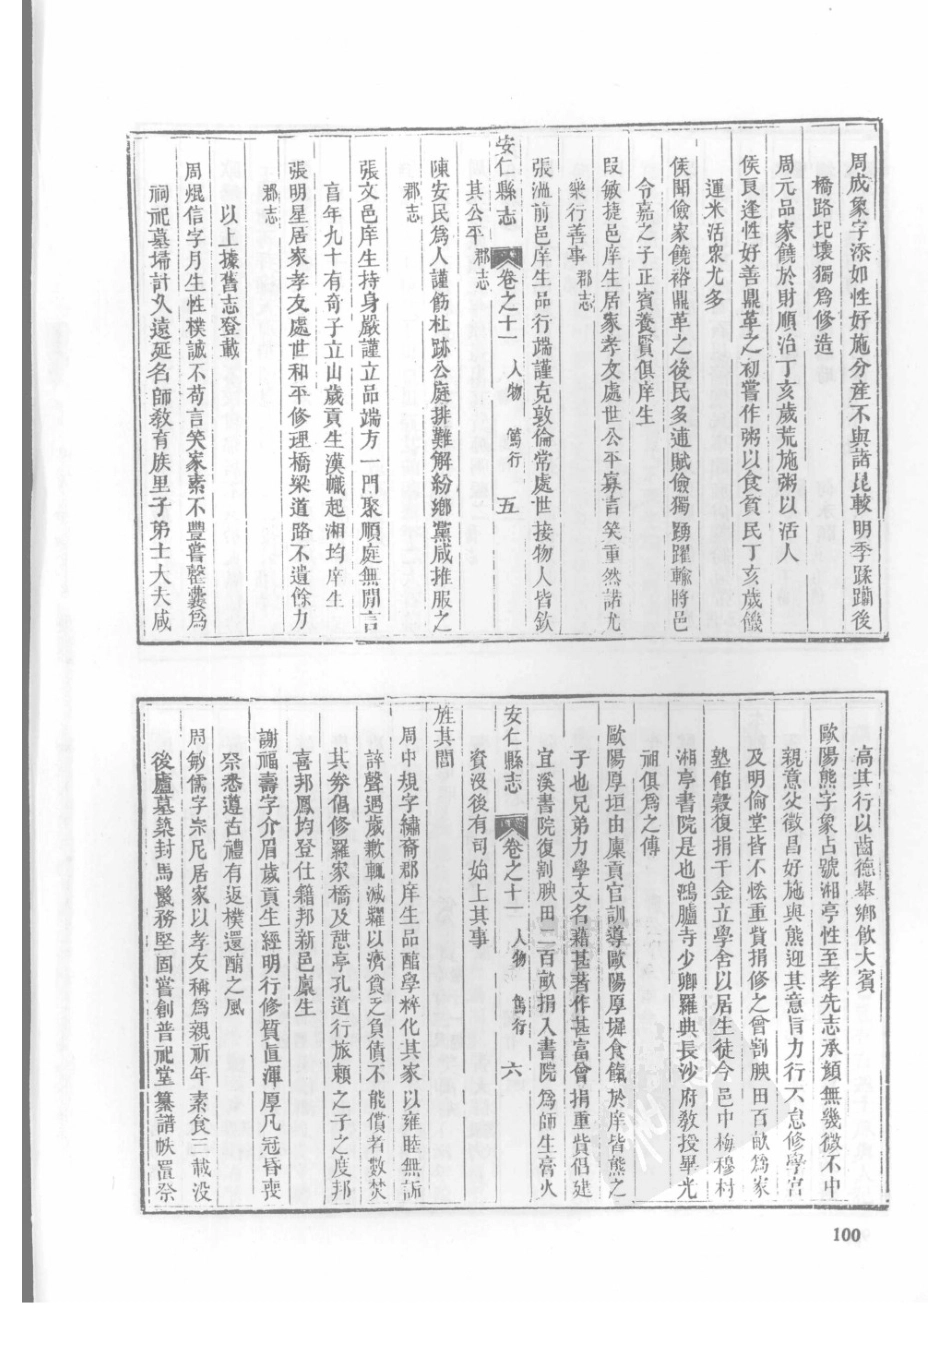 周成象字添如性好施分產不與諸昆較明季蹂躪後
橋路圮壞獨爲修造
周元品家饒於財順治丁亥歲荒施粥以活人
侯良逢性好善鼎革之初嘗作粥以食貧民丁亥歲饑
運米活衆尤多
侯開儉家饒裕鼎革之後民多逋賦儉獨踴躍輸將邑
令嘉之子正賓養賢俱庠生
段敏捷邑庠生居家孝友處世公平寡言笑重然諾尤
樂行善事 郡志
張溫前邑庠生品行端謹克敦倫常處世接物人皆欽
其公平 郡志
安仁縣志 卷之十一 人物 篤行 五
陳安民爲人謹飭杜跡公庭排難解紛鄉黨咸推服之
郡志
張文邑庠生持身嚴謹立品端方一門聚順庭無閒言
言年九十有奇子立山歲貢生漢幟起湘均庠生
張明星居家孝友處世和平修理橋梁道路不遺餘力
郡志
以上據舊志登載
周焜信字月生性樸誠不苟言笑家素不豐嘗罄囊爲
祠祀墓埽計久遠延名師教育族里子弟士大夫咸
高其行以齒德舉鄉飲大賓
歐陽熊字象占號湘亭性至孝先志承顏無幾微不中
親意父徵昌好施與熊迎其意旨力行不怠修學宮
及明倫堂皆不恡重貲捐修之曾割腴田百畝爲家
塾館穀復捐千金立學舍以居生徒今邑中梅穆村
湘亭書院是也鴻臚寺少卿羅典長沙府教授畢光
祖俱爲之傳
歐陽厚垣由廩貢官訓導歐陽厚墀食餼於庠皆熊之
子也兄弟力學文名藉甚著作甚富曾捐重貲倡建
宜溪書院復割腴田二百畝捐入書院爲師生膏火
資沒後有司始上其事
安仁縣志 卷之十一 人物 篤行 六
旌其閭
周中規字繡裔郡庠生品醇學粹化其家以雍睦無訴
誶聲遇歲歉輒減糶以濟貧乏負債不能償者數焚
其券倡修羅家橋及憇亭孔道行旅賴之子之度邦
喜邦鳳均登仕籍邦新邑廩生
謝福壽字介眉歲貢生經明行修質直渾厚凡冠昏喪
祭悉遵古禮有返樸還醇之風
周敏儒字宗尼居家以孝友稱爲親祈年素食三載沒
後廬墓築封馬鬣務堅固嘗創普祀堂纂譜帙置祭
100